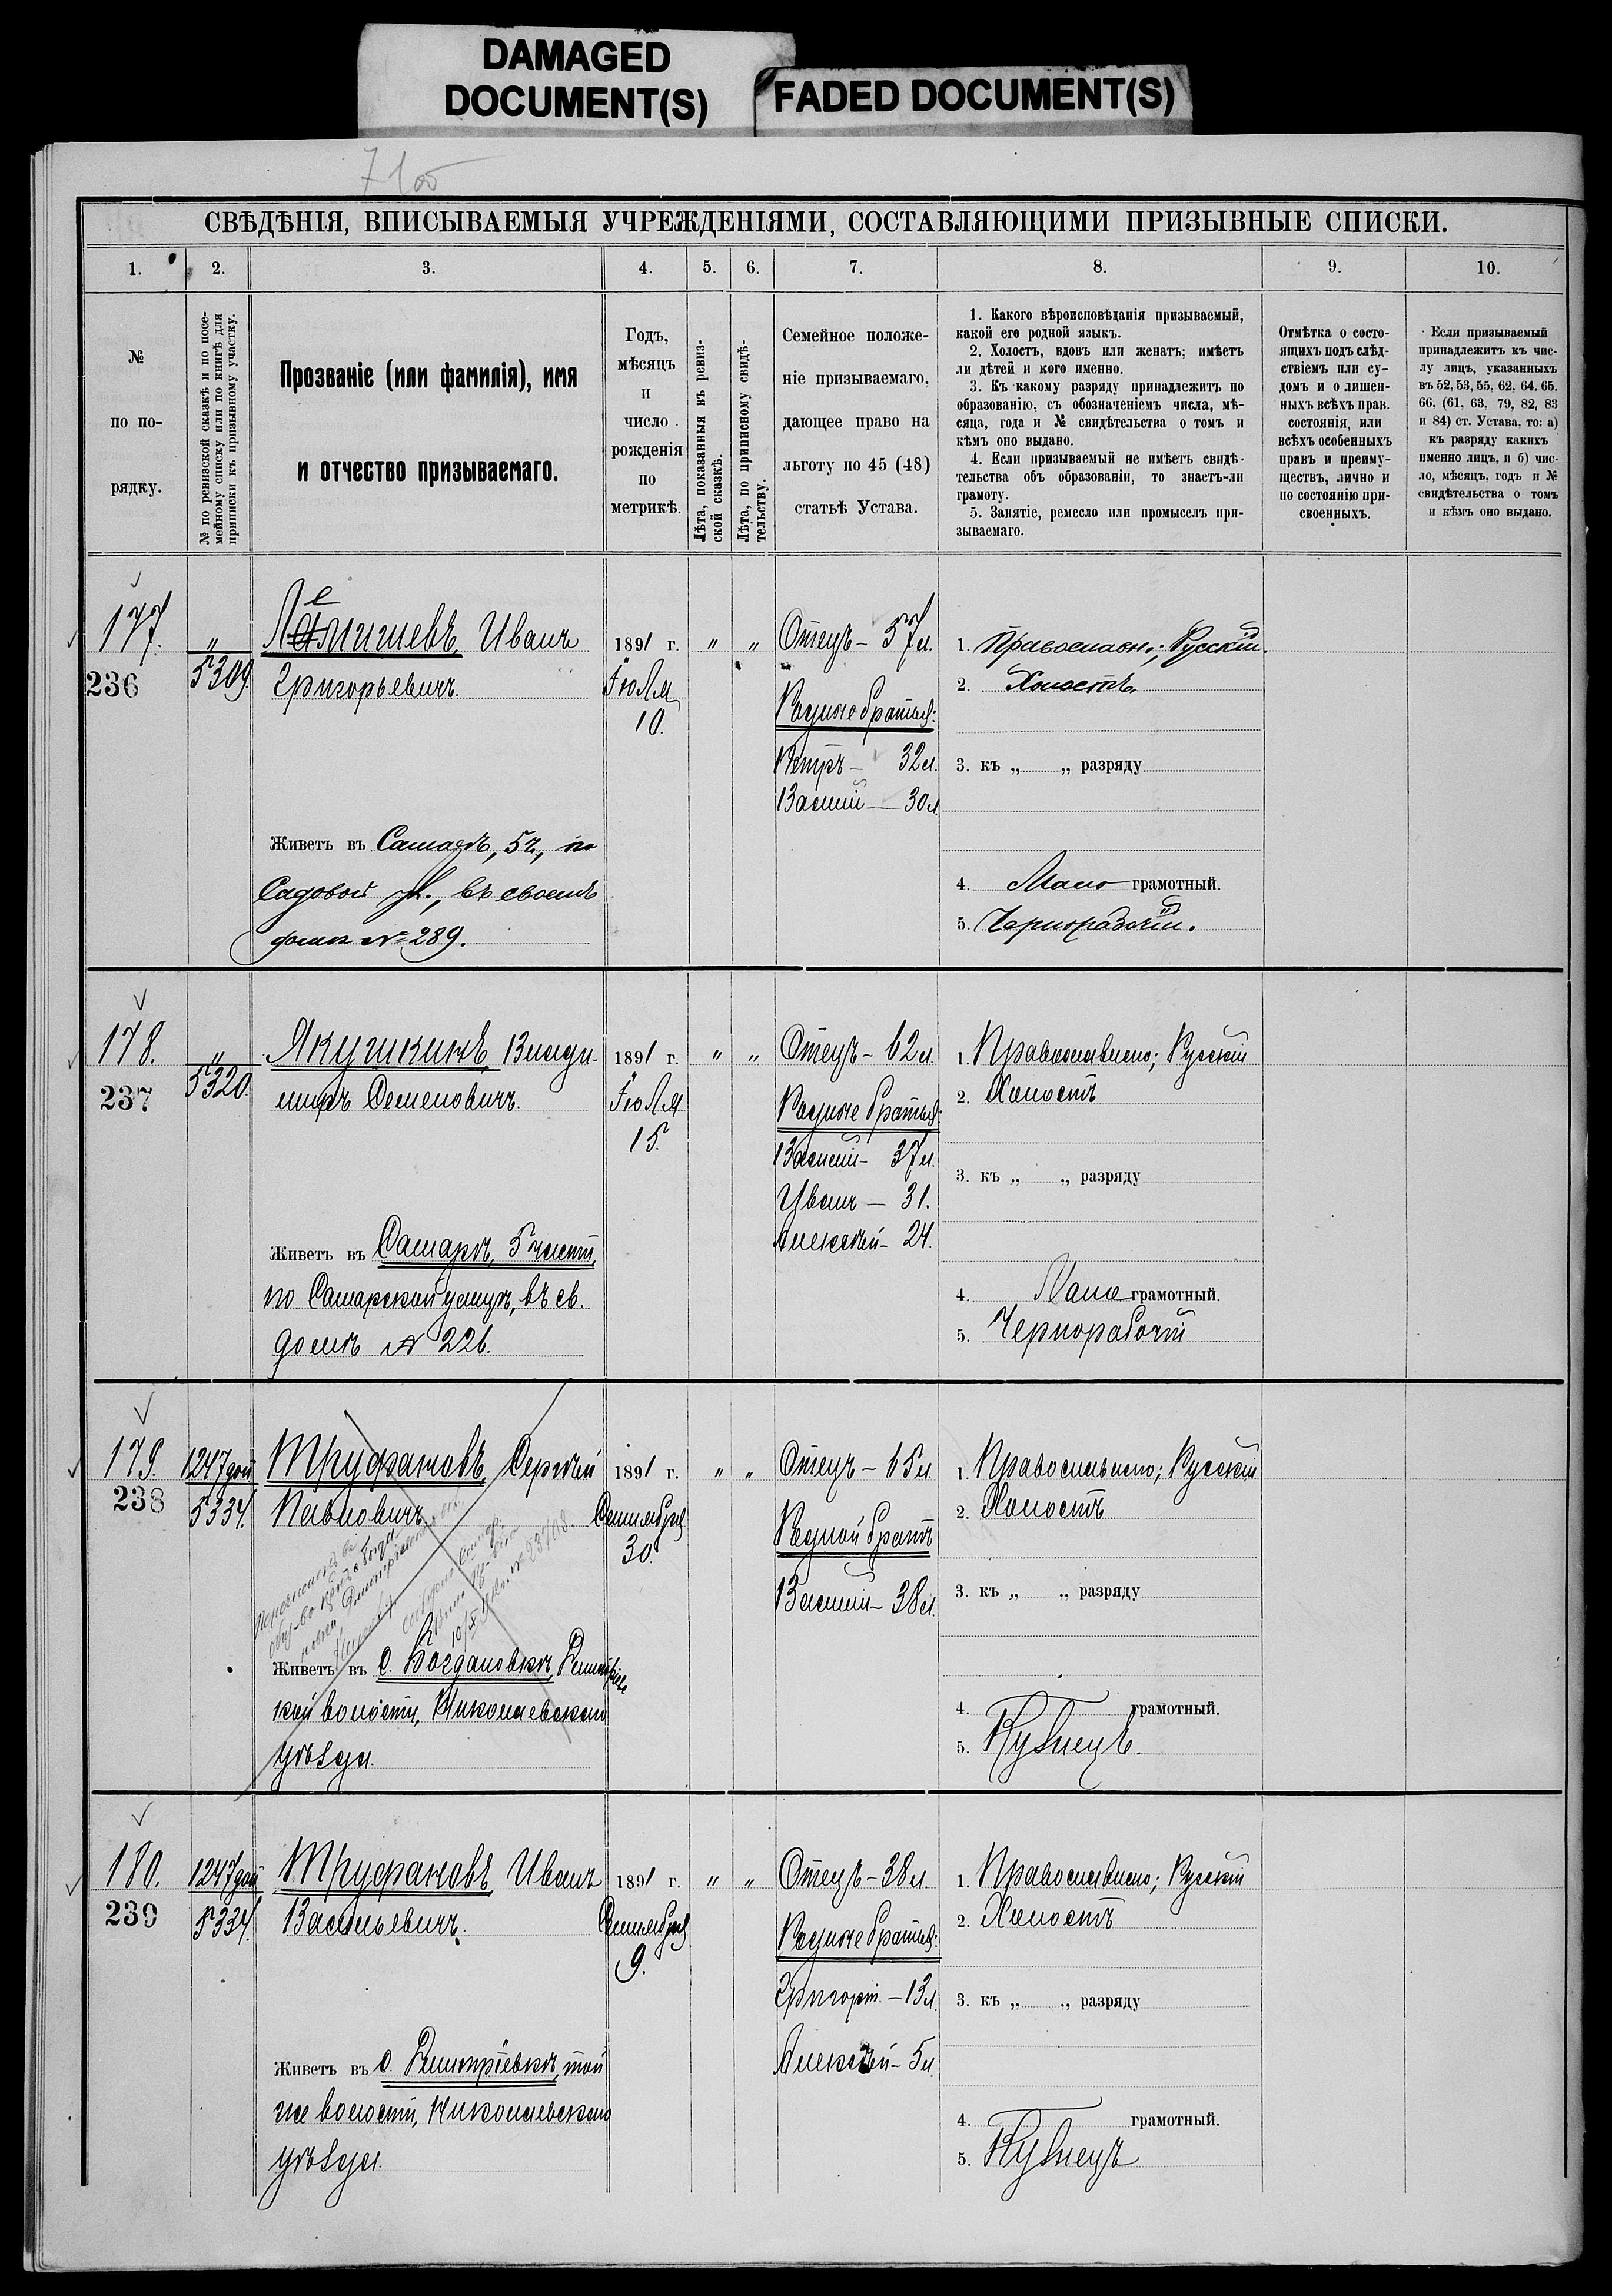 DAMAGED
DOCUMENT(S)
FADED DOCUMENT(S)
7 100
СВѢДѢНІЯ, ВПИСЫВАЕМЫЯ УЧРЕЖДЕНІЯМИ, СОСТАВЛЯЮЩИМИ ПРИЗЫВНЫЕ СПИСКИ.
1. 2. 3. 4. 5. 6. 7. 8. 9. 10.
№
по по-
рядку.
№ по ревизской сказкѣ и по посе-
мейному списку или по книгѣ для
приписки къ призывному участку.
Прозваніе (или фамилія), имя
и отчество призываемаго.
Годъ,
мѣсяцъ
и
число
рожденія
по
метрикѣ.
Лѣта, показанныя въ ревиз-
ской сказкѣ.
Лѣта, по приписному свидѣ-
тельству.
Семейное положе-
ніе призываемаго,
дающее право на
льготу по 45 (48)
статьѣ Устава.
1. Какого вѣроисповѣданія призываемый,
какой его родной языкъ.
2. Холостъ, вдовъ или женатъ; имѣетъ
ли дѣтей и кого именно.
3. Къ какому разряду принадлежитъ по
образованію, съ обозначеніемъ числа, мѣ-
сяца, года и № свидѣтельства о томъ и
кѣмъ оно выдано.
4. Если призываемый не имѣетъ свидѣ-
тельства объ образованіи, то знаетъ-ли
грамоту.
5. Занятіе, ремесло или промыселъ при-
зываемаго.
Отмѣтка о состо-
ящихъ подъ слѣд-
ствіемъ или су-
домъ и о лишен-
ныхъ всѣхъ прав.
состоянія, или
всѣхъ особенныхъ
правъ и преиму-
ществъ, лично и
по состоянію при-
своенныхъ.
Если призываемый
принадлежитъ къ чис-
лу лицъ, указанныхъ
въ 52, 53, 55, 62, 64, 65,
66, (61, 63, 79, 82, 83
и 84) ст. Устава, то: а)
къ разряду какихъ
именно лицъ, и б) чис-
ло, мѣсяцъ, годъ и №
свидѣтельства о томъ
и кѣмъ оно выдано.
177.
236
"
5309.
Иванъ
Григорьевичъ.
Живетъ въ Самарѣ, 5 ч., по
Садовой ул., въ своемъ
домѣ № 289.
1891 г.
Іюля
10.
" "
Отецъ – 57 л.
Родные братья:
Петръ – 32 л.
Василій – 30 л.
1. Православн.; Русскій.
2. Холостъ.
3. къ „ „ разряду
4. Мало грамотный.
5. Чернорабочій.
178.
237
"
5320.
Якушкинъ, Влади-
миръ Семеновичъ.
Живетъ въ Самарѣ, 5 части,
по Самарской улицѣ, въ св.
домѣ № 226.
1891 г.
Іюля
15.
" "
Отецъ – 62 л.
Родные братья:
Василій – 37 л.
Иванъ – 31.
Алексѣй – 24.
1. Православное; Русскій
2. Холостъ
3. къ „ „ разряду
4. Мало грамотный.
5. Чернорабочій
179.
238
1247 дой
5334.
Труфановъ, Сергѣй
Павловичъ.
10/XI
Живетъ въ с. Богдановкѣ, Дмитріевс
кой волости, Николаевскаго
уѣзда.
1891 г.
Сентября
30.
" "
Отецъ – 65 л.
Родной братъ
Василій – 38 л.
1. Православное; Русскій
2. Холостъ
3. къ „ „ разряду
4. грамотный.
5. Кузнецъ.
180.
239
1247 дой
5334.
Труфановъ, Иванъ
Васильевичъ.
Живетъ въ с. Дмитріевкѣ, той
же волости, Николаевскаго
уѣзда.
1891 г.
Сентября
9.
" "
Отецъ – 38 л.
Родные братья:
Григорій – 13 л.
Алексѣй – 5 л.
1. Православное; Русскій
2. Холостъ
3. къ „ „ разряду
4. грамотный.
5. Кузнецъ